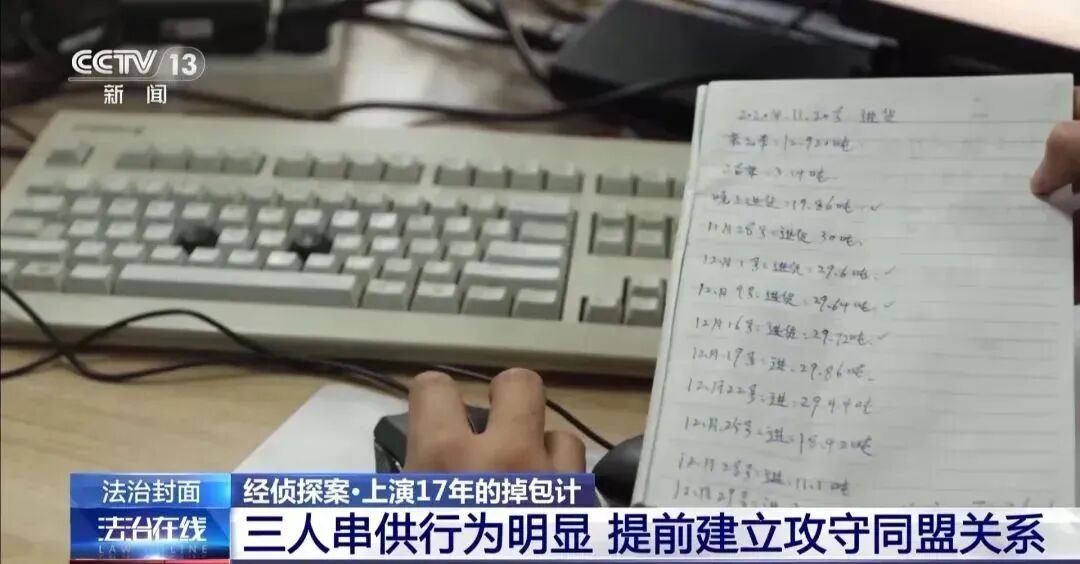 CCTV 13
新闻
2020年.11.20号 进货
12.920吨
3.14吨
晚上进货:19.86吨.✓
11月28号:进货 30吨.
12月1号:进货:29.6吨.✓
12月9号:进货:29.64吨✓
12月16号:进货:29.72吨.✓
12月19号:进:29.86吨.
12月22号:进:29.44吨
12月25号:进:18.92吨
12月28号:进:11.1吨
12月29号
法治封面
经侦探案·上演17年的掉包计
法治在线
LAW ONLINE
三人串供行为明显 提前建立攻守同盟关系